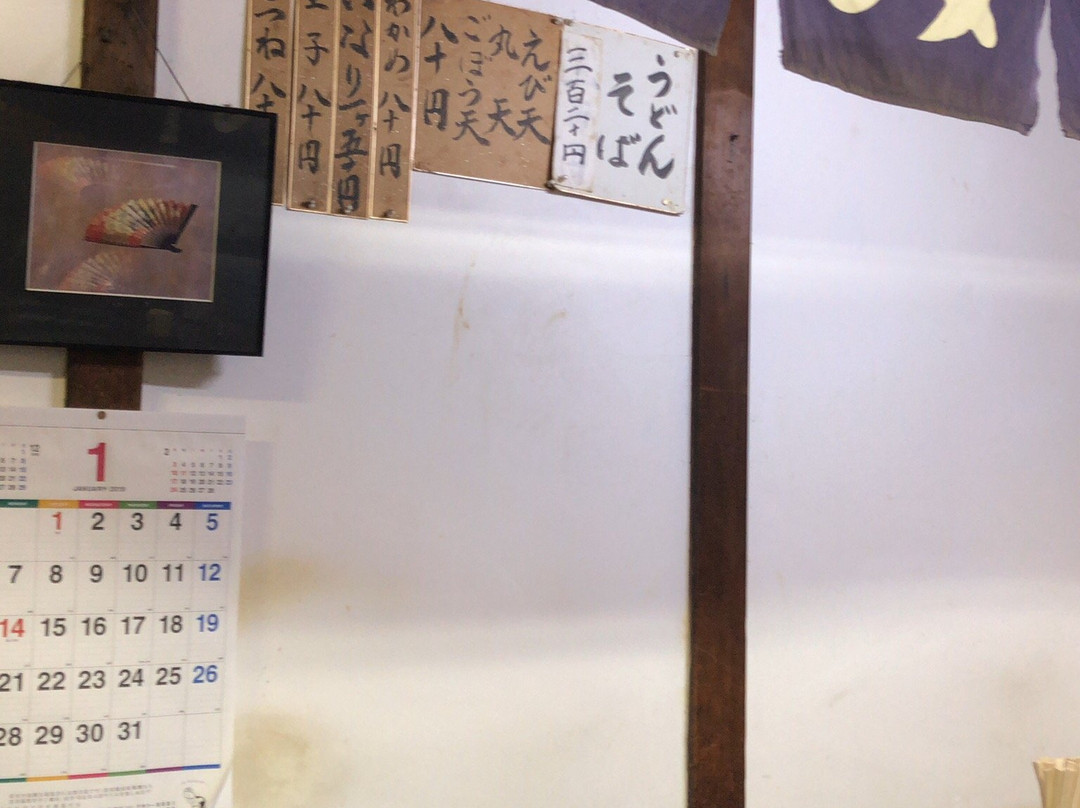 うどん
そば
三百二十円
えび天
丸天
ごぼう天
八十円
わかめ 八十円
いなり一ヶ五十円
玉子 八十円
つね 八十
1
JANUARY 2019
12
2
1 2 3 4 5
7 8 9 10 11 12
14 15 16 17 18 19
21 22 23 24 25 26
28 29 30 31